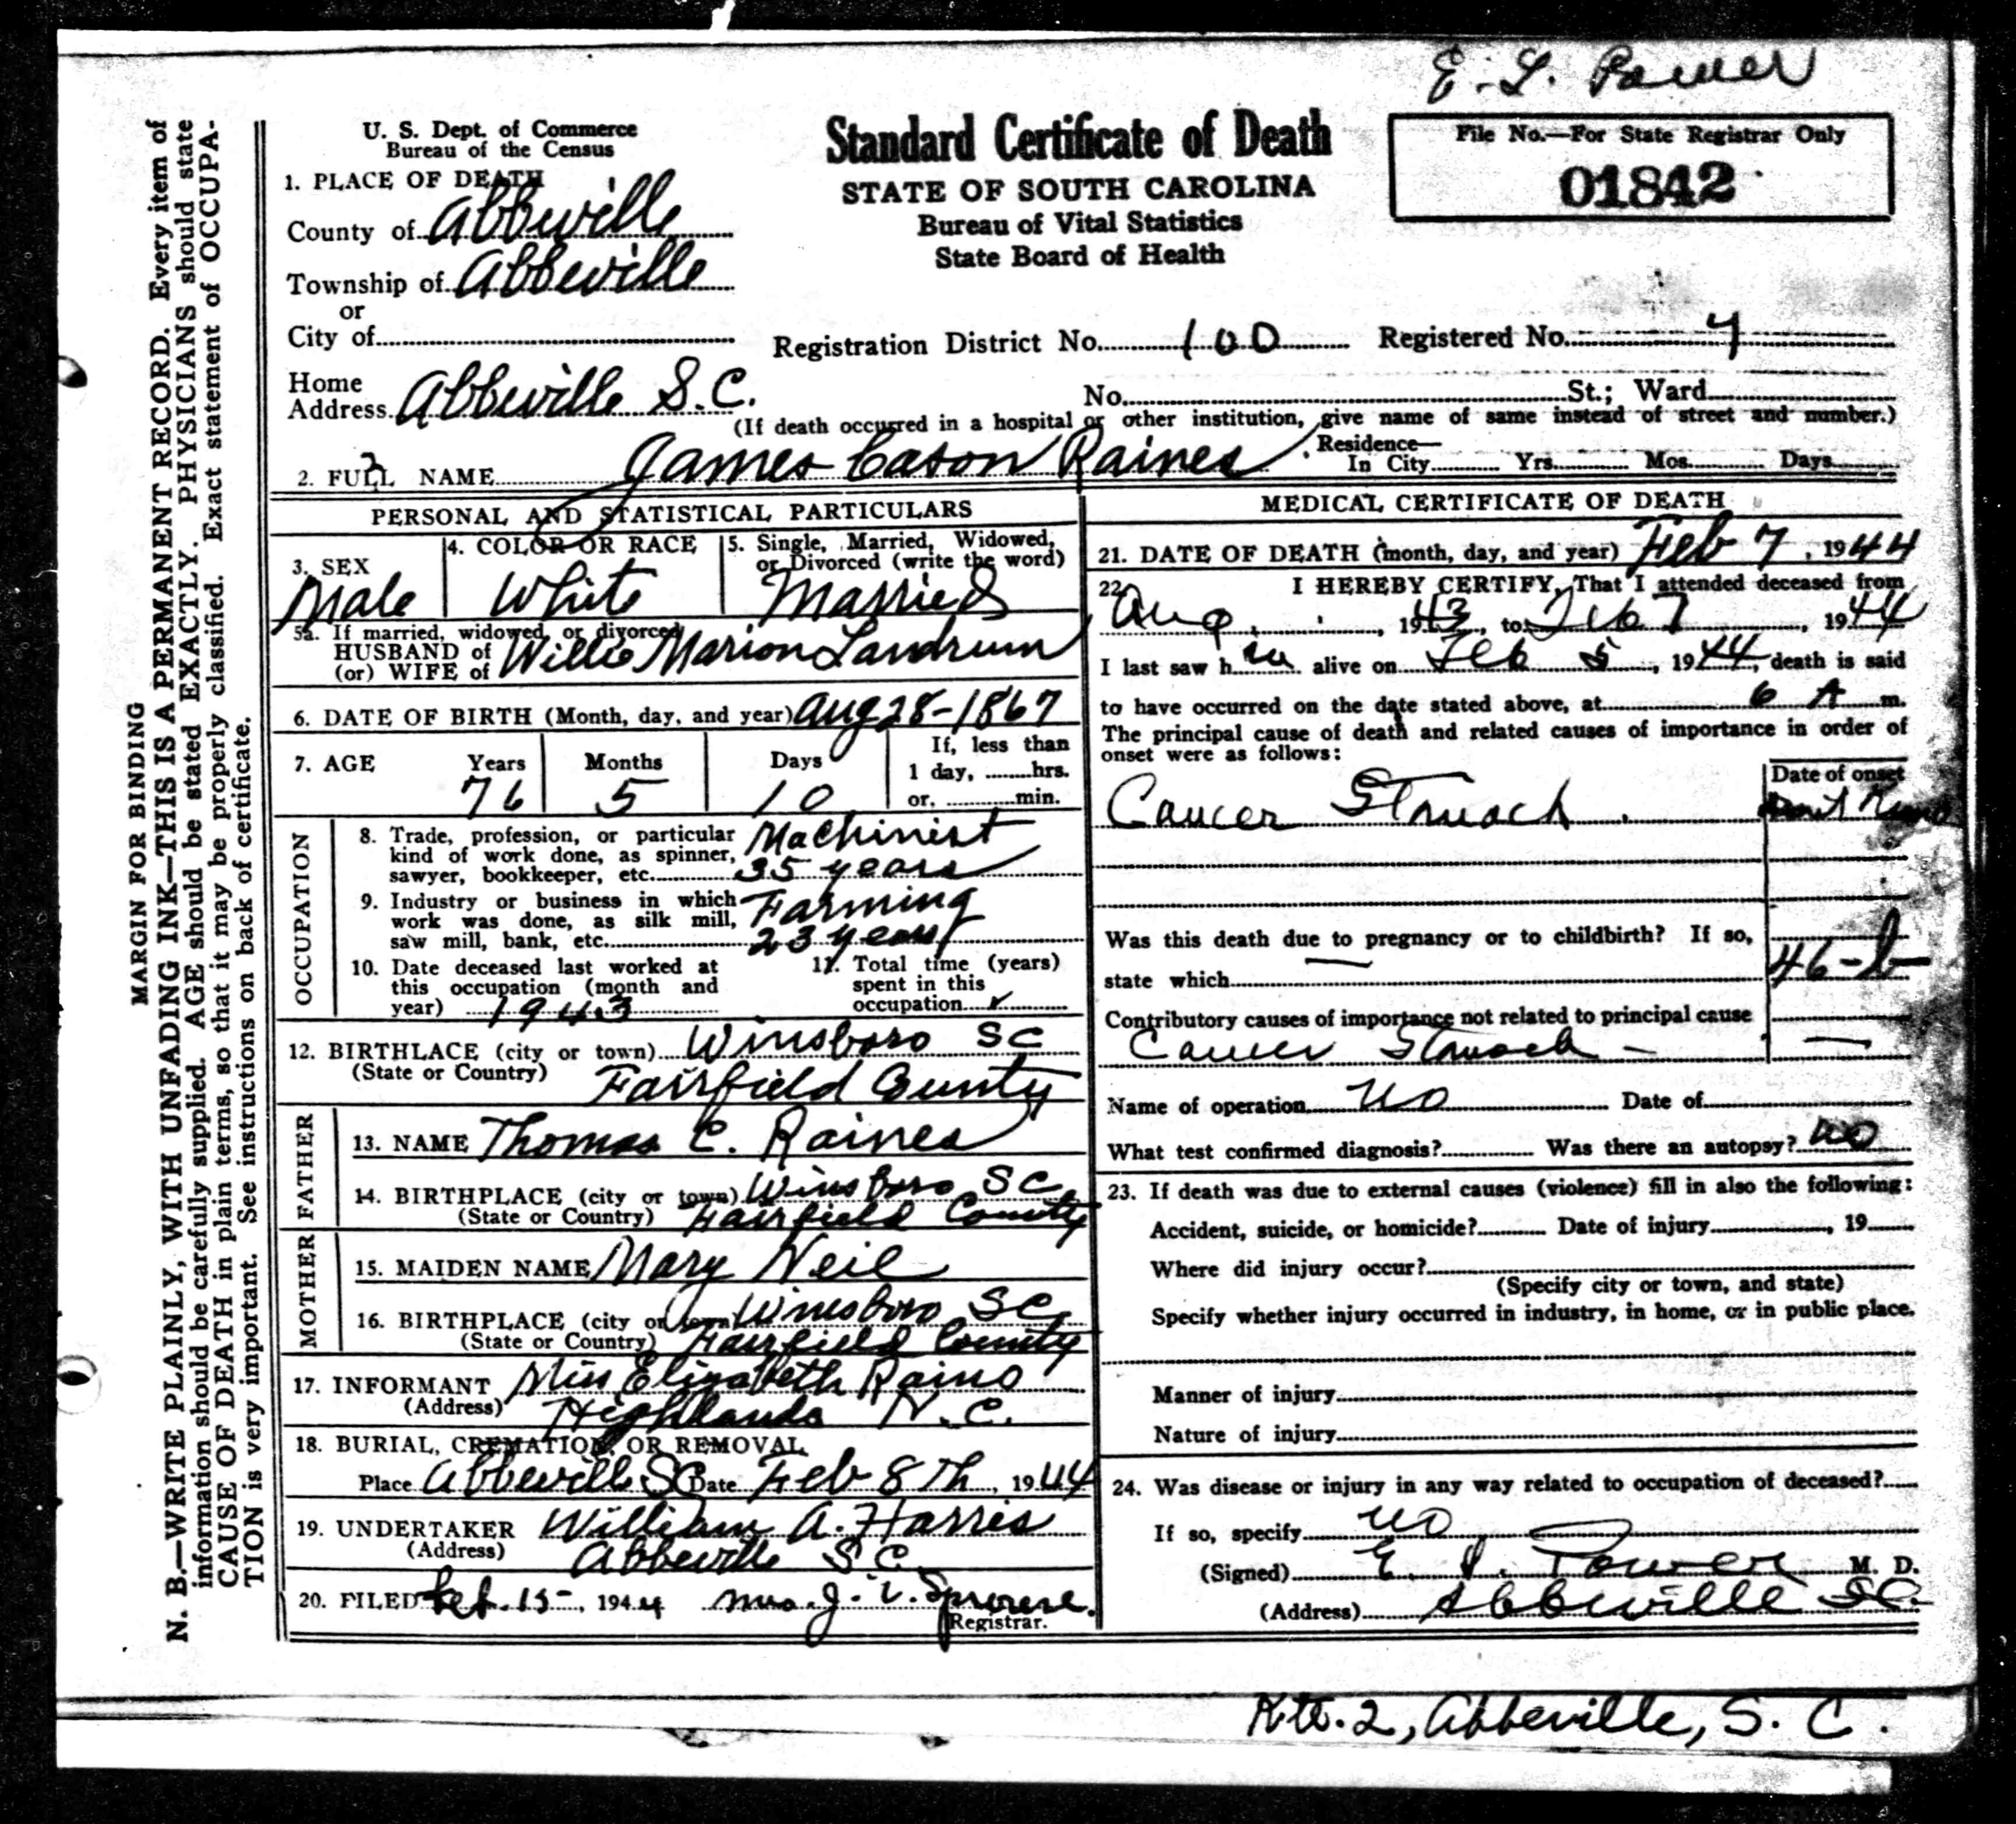 E. L. Power
U. S. Dept. of Commerce
Bureau of the Census
Standard Certificate of Death
STATE OF SOUTH CAROLINA
Bureau of Vital Statistics
State Board of Health
File No.—For State Registrar Only
01842
1. PLACE OF DEATH
County of Abbeville
Township of Abbeville
or
City of
Registration District No. 100 Registered No.
Home
Address Abbeville S.C.
No. St.; Ward
(If death occurred in a hospital or other institution, give name of same instead of street and number.)
2. FULL NAME James Eason Raines
Residence—
In City Yrs. Mos. Days
PERSONAL AND STATISTICAL PARTICULARS
3. SEX
Male
4. COLOR OR RACE
White
5. Single, Married, Widowed,
or Divorced (write the word)
Married
5a. If married, widowed, or divorced
HUSBAND of
(or) WIFE of Willie Marion Landrum
6. DATE OF BIRTH (Month, day, and year) Aug 28-1867
7. AGE
Years
76
Months
5
Days
10
If, less than
1 day, hrs.
or, min.
OCCUPATION
8. Trade, profession, or particular
kind of work done, as spinner,
sawyer, bookkeeper, etc. Machinist
35 years
9. Industry or business in which
work was done, as silk mill,
saw mill, bank, etc. Farming
23 years
10. Date deceased last worked at
this occupation (month and
year) 1943
11. Total time (years)
spent in this
occupation ✓
12. BIRTHLACE (city or town) Winsboro SC
(State or Country) Fairfield County
FATHER
13. NAME Thomas C. Raines
14. BIRTHPLACE (city or town) Winsboro SC
(State or Country) Fairfield County
MOTHER
15. MAIDEN NAME Mary Neil
16. BIRTHPLACE (city or town) Winsboro SC
(State or Country) Fairfield County
17. INFORMANT Miss Elizabeth Raines
(Address) Highlands N.C.
18. BURIAL, CREMATION, OR REMOVAL
Place Abbeville SC Date Feb 8th, 1944
19. UNDERTAKER William A. Harris
(Address) Abbeville S.C.
20. FILED Feb. 15-, 1944 Mrs. J.
Registrar.
MEDICAL CERTIFICATE OF DEATH
21. DATE OF DEATH (month, day, and year) Feb 7, 1944
22. I HEREBY CERTIFY, That I attended deceased from
Aug., 1943, to Feb 7, 1944
I last saw h alive on Feb 5, 1944, death is said
to have occurred on the date stated above, at 6 A m.
The principal cause of death and related causes of importance in order of
onset were as follows:
Date of onset
Cancer Stomach
Was this death due to pregnancy or to childbirth? If so,
state which —
46-b
Contributory causes of importance not related to principal cause
Cancer Stomach —
Name of operation no Date of
What test confirmed diagnosis? Was there an autopsy? no
23. If death was due to external causes (violence) fill in also the following:
Accident, suicide, or homicide? Date of injury, 19
Where did injury occur?
(Specify city or town, and state)
Specify whether injury occurred in industry, in home, or in public place.
Manner of injury
Nature of injury
24. Was disease or injury in any way related to occupation of deceased?
If so, specify no
(Signed) E. L. Power M. D.
(Address) Abbeville SC.
Rte. 2, Abbeville, S. C.
MARGIN FOR BINDING
N. B.—WRITE PLAINLY, WITH UNFADING INK—THIS IS A PERMANENT RECORD. Every item of
information should be carefully supplied. AGE should be stated EXACTLY. PHYSICIANS should state
CAUSE OF DEATH in plain terms, so that it may be properly classified. Exact statement of OCCUPA-
TION is very important. See instructions on back of certificate.